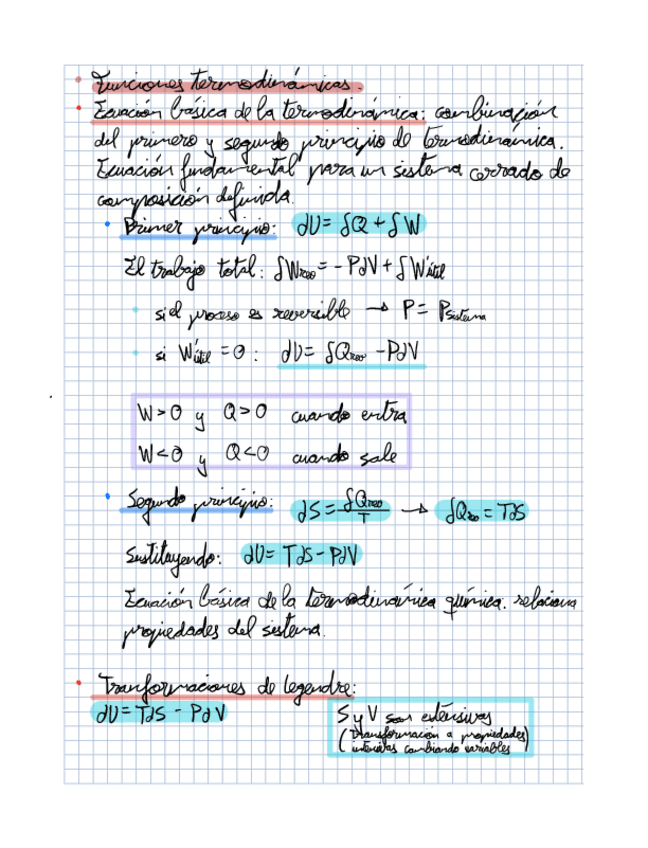 Funciones termodinámicas.
Ecuación básica de la termodinámica: combinación
del primero y segundo principio de termodinámica.
Ecuación fundamental para un sistema cerrado de
composición definida.
Primer principio: dU = δQ + δW
El trabajo total: δWrev = - PdV + δW'útil
si el proceso es reversible → P = Psistema
si W'útil = 0 : dU = δQrev - PdV
W > 0 y Q > 0 cuando entra
W < 0 y Q < 0 cuando sale
Segundo principio: dS = δQrev / T → δQrev = TdS
Sustituyendo: dU = TdS - PdV
Ecuación básica de la termodinámica química. relaciona
propiedades del sistema.
Tranformaciones de legendre:
dU = TdS - PdV
S y V son extensivas
(transformación a propiedades)
intensivas cambiando variables